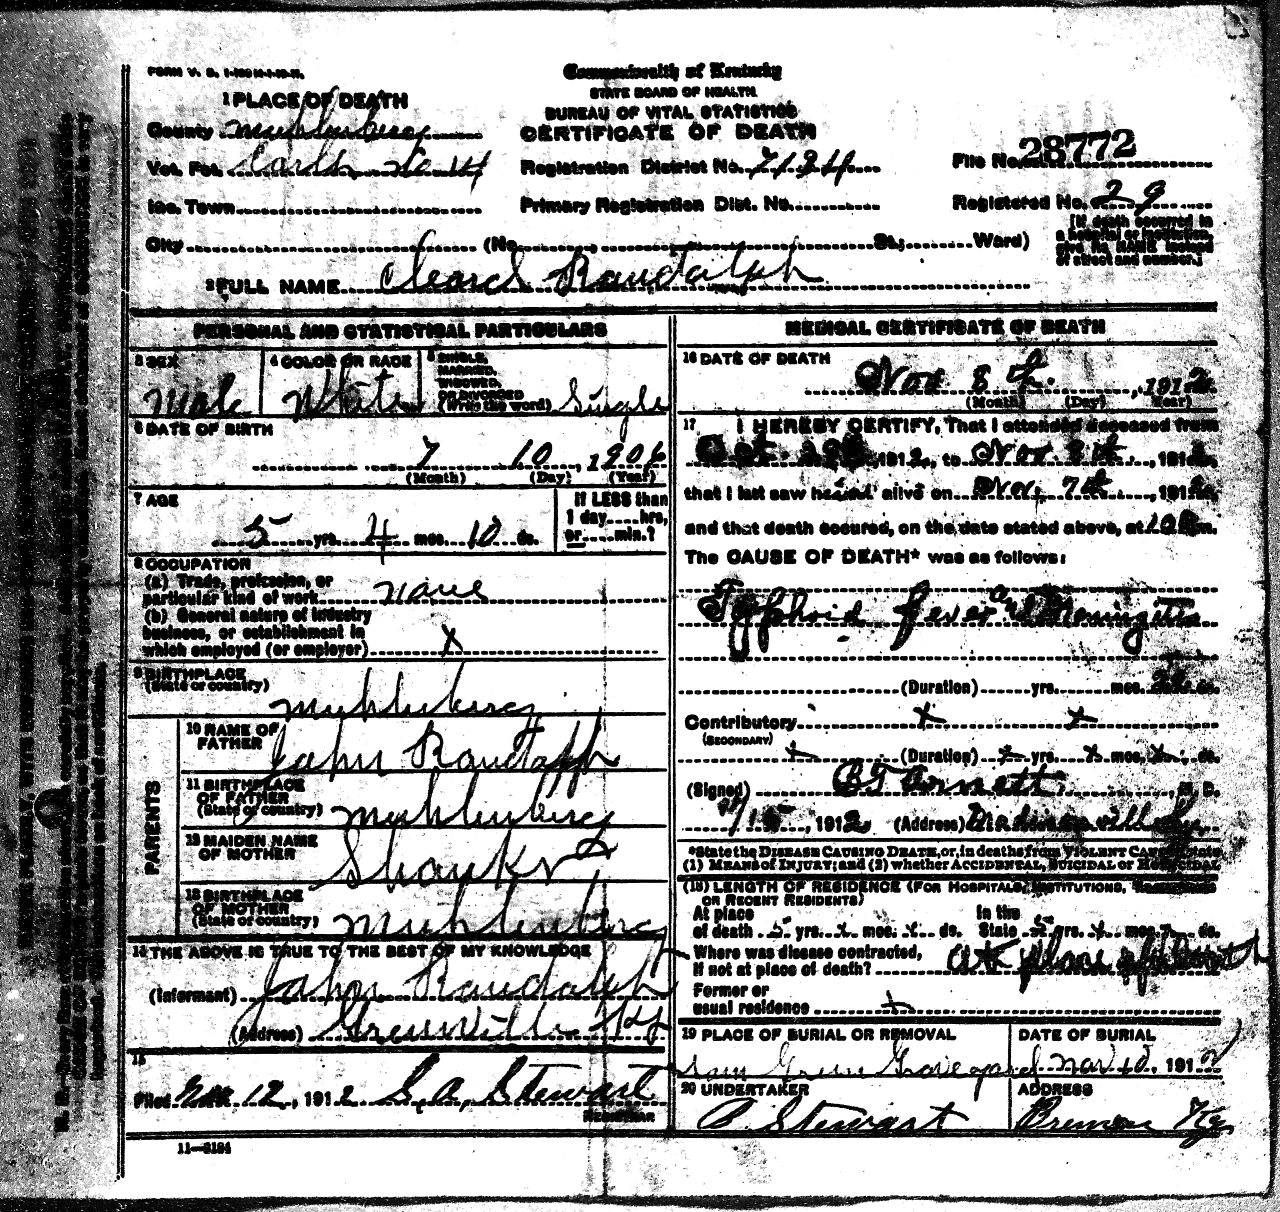 FORM V. S.
Commonwealth of Kentucky
STATE BOARD OF HEALTH
BUREAU OF VITAL STATISTICS
CERTIFICATE OF DEATH
1 PLACE OF DEATH
County Muhlenberg
Vot. Pct. No 14
Registration District No.
File No. 28772
Inc. Town
Primary Registration Dist. No.
Registered No. 29
City (No. , St.; Ward)
[If death occurred in
a hospital or institution,
give its NAME instead
of street and number.]
2 FULL NAME Randolph
PERSONAL AND STATISTICAL PARTICULARS
3 SEX
Male
4 COLOR OR RACE
White
5 SINGLE,
MARRIED,
WIDOWED,
OR DIVORCED
(Write the word) Single
6 DATE OF BIRTH
7 10, 1906
(Month) (Day) (Year)
7 AGE
5 yrs. 4 mos. 10 ds.
If LESS than
1 day....hrs,
or....min.?
8 OCCUPATION
(a) Trade, profession, or
particular kind of work none
(b) General nature of industry
business, or establishment in
which employed (or employer) x
9 BIRTHPLACE
(State or country)
Muhlenberg
PARENTS
10 NAME OF
FATHER
John Randolph
11 BIRTHPLACE
OF FATHER
(State or country) Muhlenberg
12 MAIDEN NAME
OF MOTHER
13 BIRTHPLACE
OF MOTHER
(State or country) Muhlenberg
14 THE ABOVE IS TRUE TO THE BEST OF MY KNOWLEDGE
(Informant) John Randolph
(Address) Greenville Ky
15
Filed Nov 12, 1912 S. A. Stewart
REGISTRAR
11-3184
MEDICAL CERTIFICATE OF DEATH
16 DATE OF DEATH
Nov 8th, 1912
(Month) (Day) Year)
17 I HEREBY CERTIFY, That I attended deceased from
Oct. , 1912, to Nov. 8th, 1912,
that I last saw h alive on Nov. 7th, 1912,
and that death occured, on the date stated above, at 10 m.
The CAUSE OF DEATH* was as follows:
Typhoid fever and Meningitis
(Duration) yrs. mos. 22 ds.
Contributory x x
(SECONDARY)
x (Duration) x yrs. x mos. x ds.
(Signed) Arnett, M. D.
, 1912 (Address) Madisonville Ky
*State the DISEASE CAUSING DEATH, or, in deaths from VIOLENT CAUSES, state
(1) MEANS of INJURY; and (2) whether ACCIDENTAL, SUICIDAL or HOMICIDAL
(18) LENGTH OF RESIDENCE (FOR HOSPITALS, INSTITUTIONS,
OR RECENT RESIDENTS)
At place In the
of death 5 yrs. x mos. x ds. State 5 yrs. x mos. x ds.
Where was disease contracted,
if not at place of death? at place of death
Former or
usual residence x
19 PLACE OF BURIAL OR REMOVAL
Green Graveyard
DATE OF BURIAL
Nov 10, 1912
20 UNDERTAKER
Stewart
ADDRESS
Bremen Ky